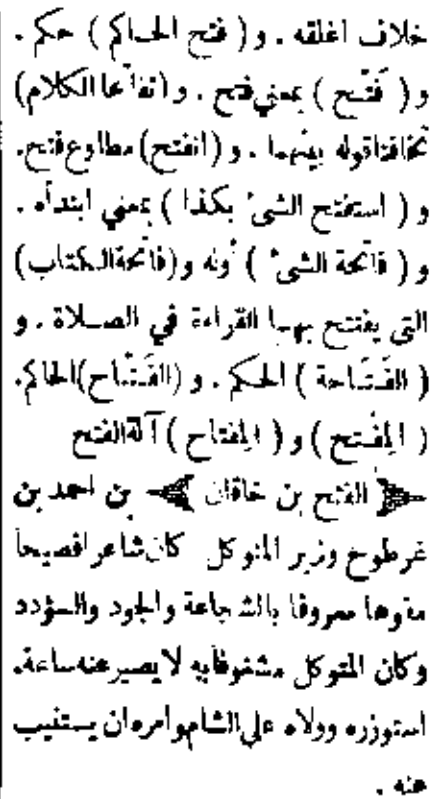 خلاف اغلقه . و ( فتح الحاكم ) حكم .
و ( فَتَّح ) بمعني فتح . و (تفاتحا الكلام)
تخافتا قوله بينهما . و (انفتح) مطاوع فتح.
و ( استفتح الشئ بكذا ) بمعني ابتدأه .
و ( فاتحة الشئ ) أوله و (فاتحة الكتاب)
التي يفتتح بهـا القراءة في الصـلاة . و
( الفَتَاحة ) الحكم . و (الفَتَّاح) الحاكم.
( المِفْتح ) و ( المِفتاح ) آلة الفتح
الفتح بن خاقان بن احمد بن
غرطوج وزير المتوكل كان شاعرا فصيحاً
مفوها معروفا بالشجاعة والجود والسؤدد
وكان المتوكل مشغوفا به لا يصبر عنه ساعة.
استوزره وولاه علي الشام وامره ان يستنيب
عنه .